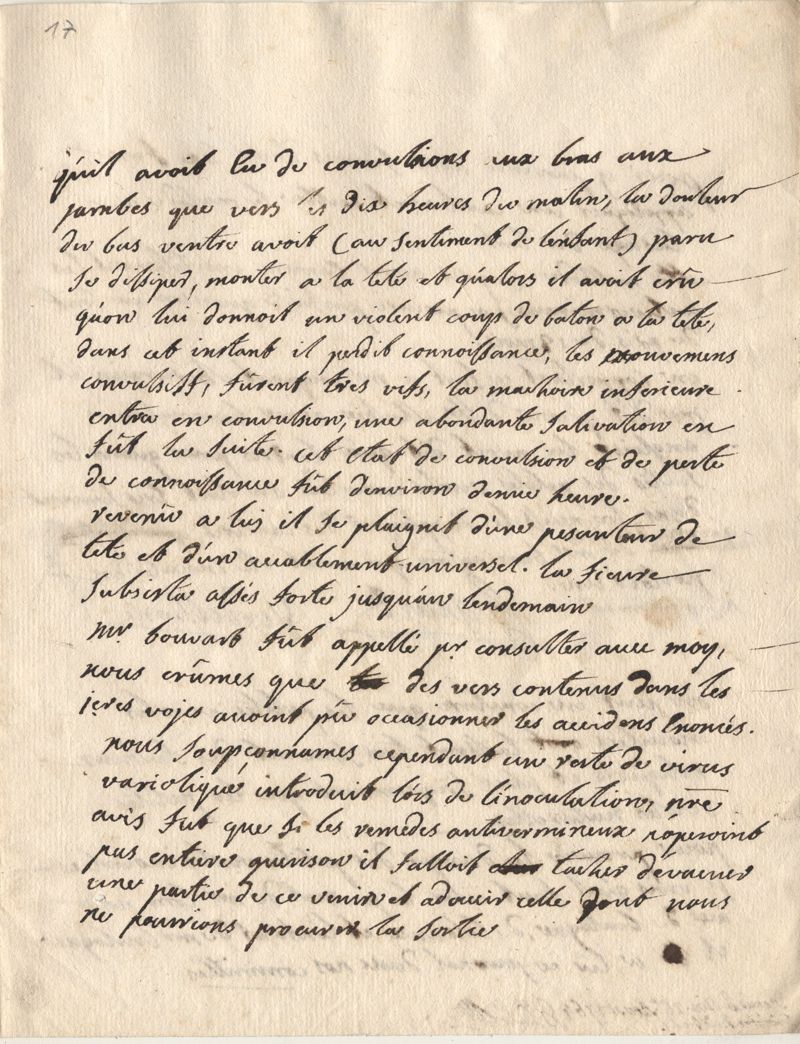 17
qu'il avoit Eu de convulsions aux bras aux
jambes que vers les dix heures du matin, la douleur
du bas ventre avoit (au sentiment de l'énfant) paru
se dissiper, monter a la tete et qu'alors il avoit crû
qu'on lui donnoit un violent coup de baton a la tete,
dans cet instant il perdit connoissance, les mouvemens
convulsifs, fûrent tres vifs, la machoire inferieure
entra en convulsion, une abondante salivation en
fût la suite. cet Etat de convulsion et de perte
de connoissance fût d'environ demie heure.
revenû a luy il se plaignit d'une pesanteur de
tete et d'un accablement universel. la fievre
subsista assés forte jusqu'au lendemain
mr. bouvart fût appellé pr. consulter avec moy,
nous crûmes que des vers contenus dans les
1eres voyes avoint pû occasionner les accidens Enoncés.
nous soupçonnames cependant un reste de virus
varioliqué, introduit lors de l'inoculation, nre
avis fut que si les remedes antivermineux n'operoint
pas entiere guerison il falloit tacher d'évacuer
une partie de ce venin et adoucir celle dont nous
ne pourrions procurer la sortie